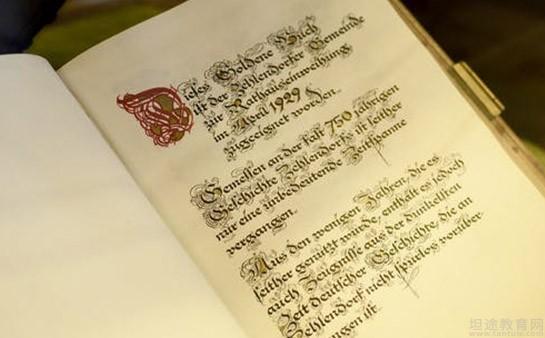 Dieses Goldene Buch
ist der Zehlendorfer Gemeinde
zur Rathauseinweihung
im April 1929
zugeeignet worden.
Gemessen an der fast 750 jährigen
Geschichte Zehlendorfs ist seither
nur eine unbedeutende Zeitspanne
vergangen.
Aus den wenigen Jahren, die es
seither genützt wurde, enthält es jedoch
auch Zeugnisse aus der dunkelsten
Zeit deutscher Geschichte, die an
Zehlendorf nicht spurlos vorüber-
gegangen ist.
坦途教育网
www.tantuw.com